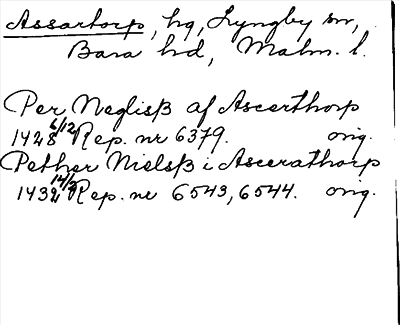 Assartorp, hg, Lyngby sn,
Bara hd, Malm. l.
Per Neglisß af Ascerthorp
1428 6/12 Rep. nr 6379. orig.
Pether Nielsß i Ascerathorp
1432 14/2 Rep. nr 6543, 6544. orig.